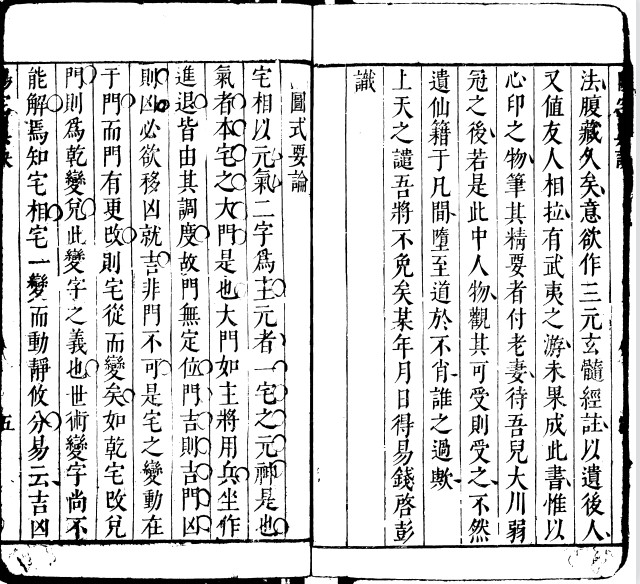 法腹藏久矣意欲作三元玄髓經註以遺後人
又值友人相拉有武夷之游未果成此書惟以
心印之物筆其精要者付老妻待吾兒大川弱
冠之後若是此中人物觀其可受則受之不然
遺仙籍于凡間墮至道於不肖誰之過歟
上天之譴吾將不免矣某年月日得易錢啓彭
識
圖式要論
宅相以元氣二字為主元者一宅之元神是也
氣者本宅之大門是也大門如主將用兵坐作
進退皆由其調度故門無定位門吉則吉門凶
則凶必欲移凶就吉非門不可是宅之變動在
于門而門有更改則宅從而變矣如乾宅改兌
門則為乾變兌此變字之義也世術變字尚不
能解焉知宅相宅一變而動靜攸分易云吉凶
五